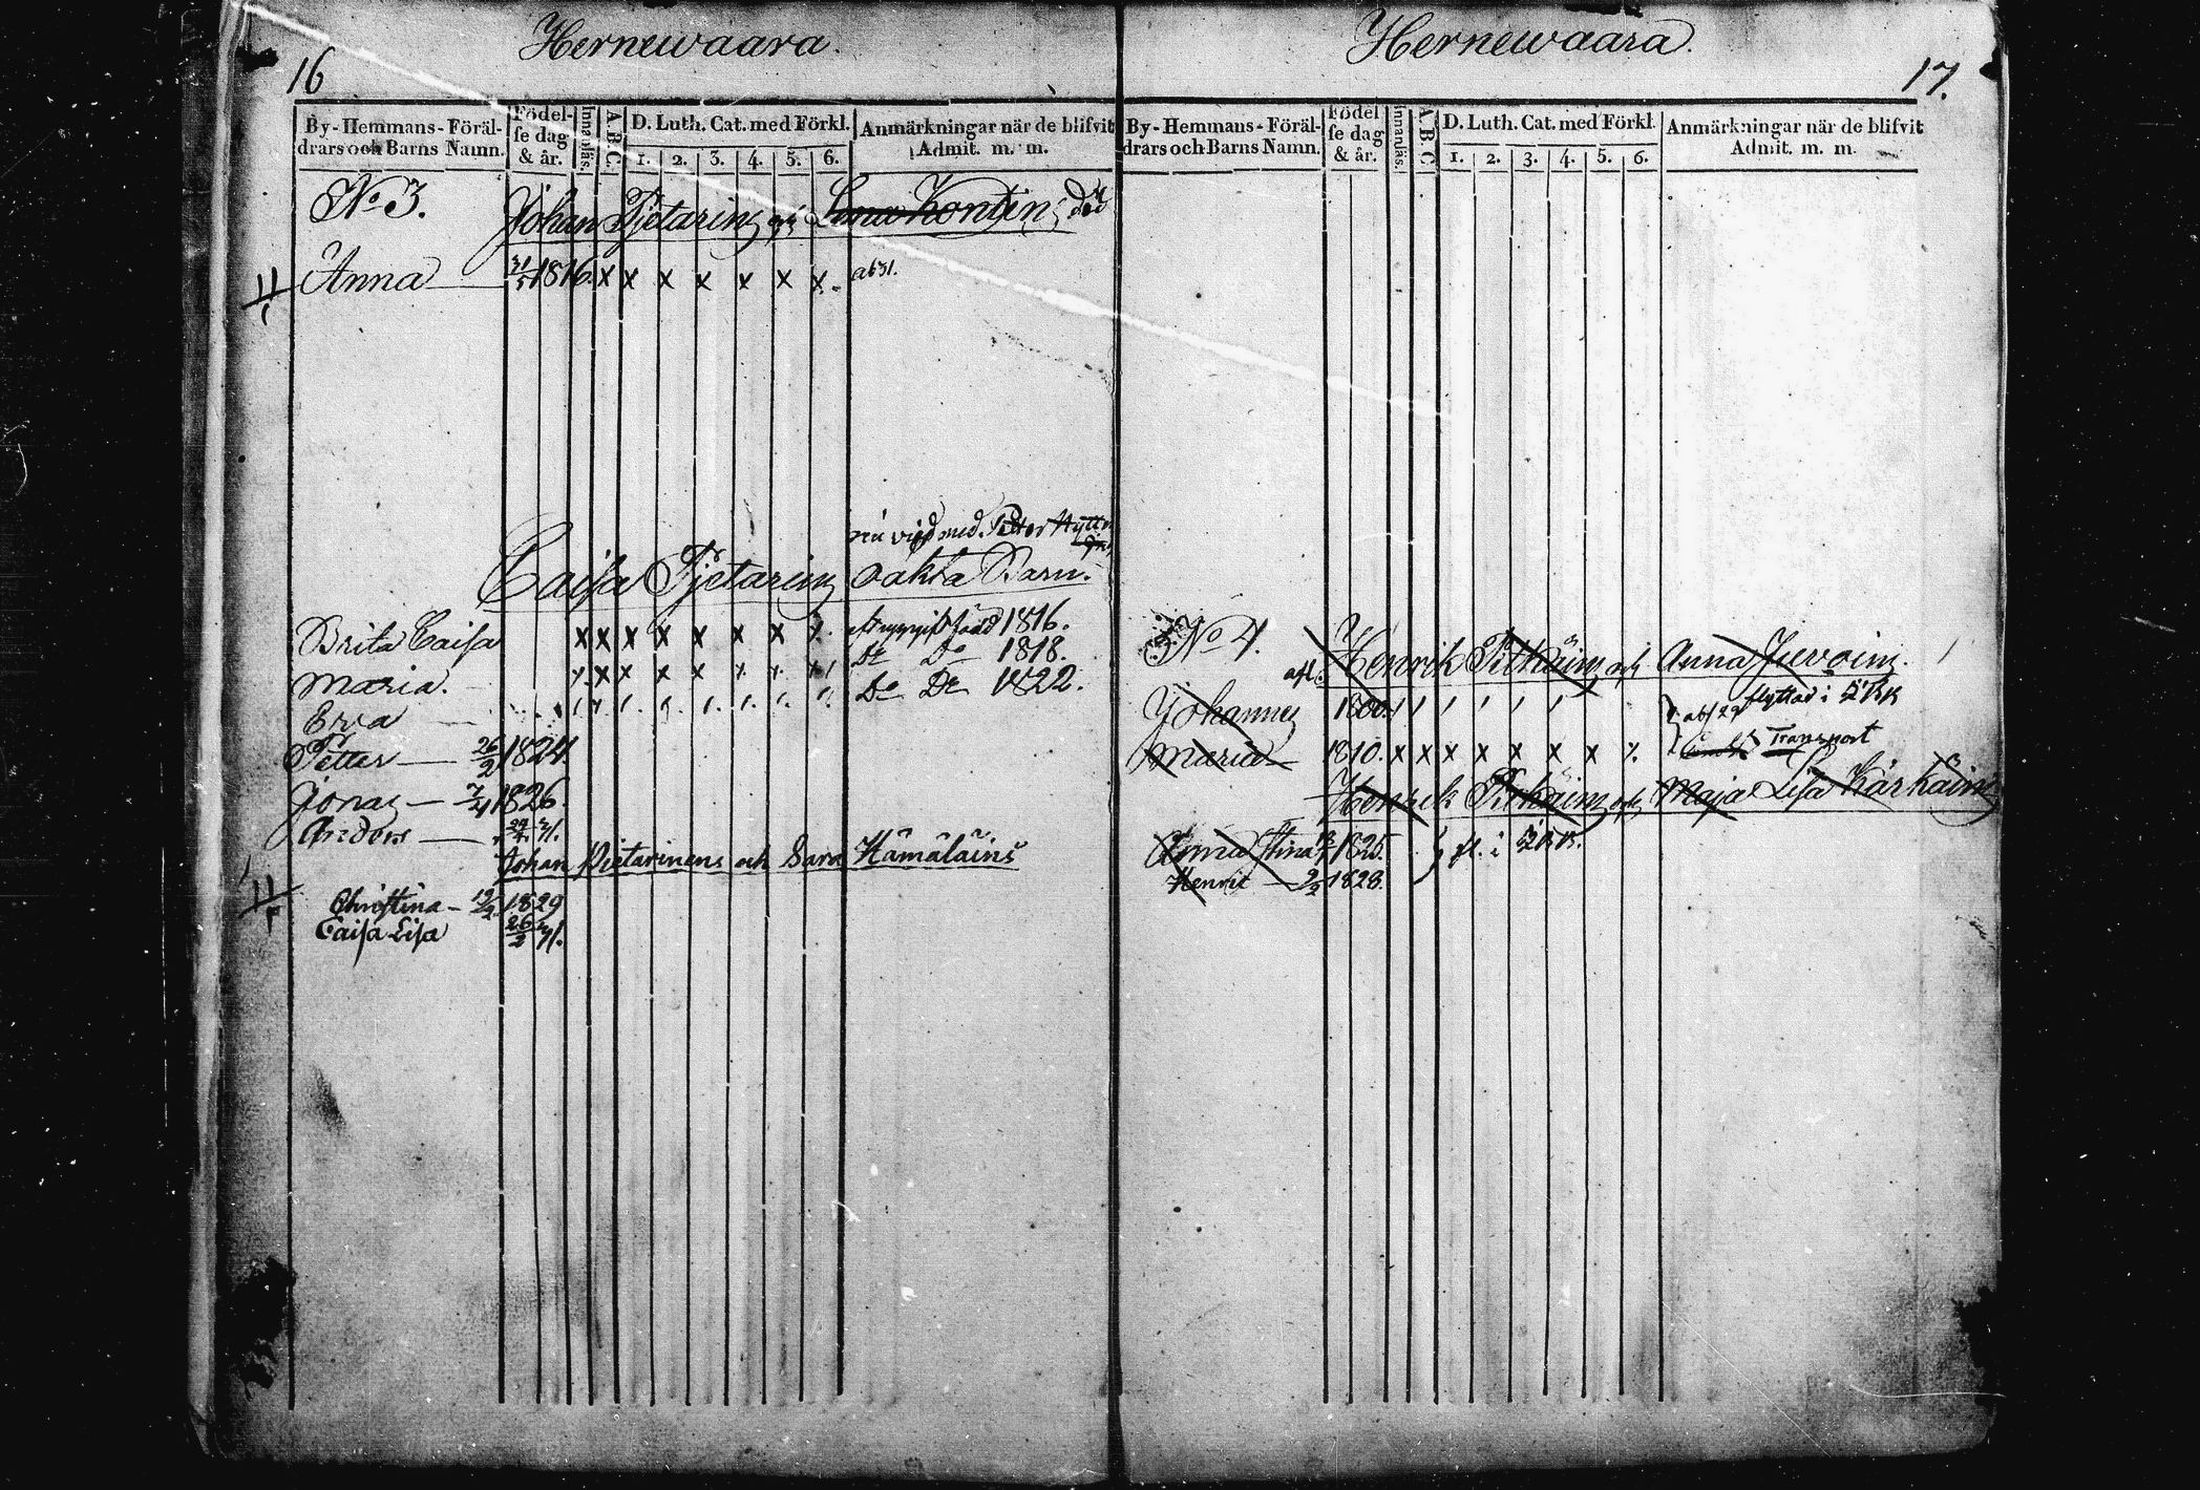 16
Hernewaara.
By-Hemmans-Föräl-
drars och Barns Namn.
Födel-
se dag
& år.
Innanläs.
A.B.C.
D. Luth. Cat. med Förkl.
1. 2. 3. 4. 5. 6.
Anmärkningar när de blifvit
Admit. m. m.
No 3. Johan Pjetarin och Lena Kontin död
Anna 1816. x x x x x x x x
nu vigd med Petter
Caisa Pjetarin oäkta Barn.
Brita Caisa x x x x x x x x 1816.
Maria. x x x x x x x x Do Do 1818.
Eva Do Do 1822.
Petter 26/2 1824.
Jonas 7/4 1826.
Anders 31.
Johan Pietarinens och Sara Hämäläins
Christina 1829
Caisa Lisa 26/2 31.
Hernewaara.
17.
By-Hemmans-Föräl-
drars och Barns Namn.
Födel
se dag
& år.
Innanläs.
A.B.C
D. Luth. Cat. med Förkl.
1. 2. 3. 4. 5. 6.
Anmärkningar när de blifvit
Admit. m. m.
No 4. Henrik och Anna
afl. Johannes 1800. flyttad i
Maria 1810. x x x x x x x Transport
Henrik och Maja Lisa Kärkäin
Anna Stina 1825. fl. i
Henric 2/2 1828.